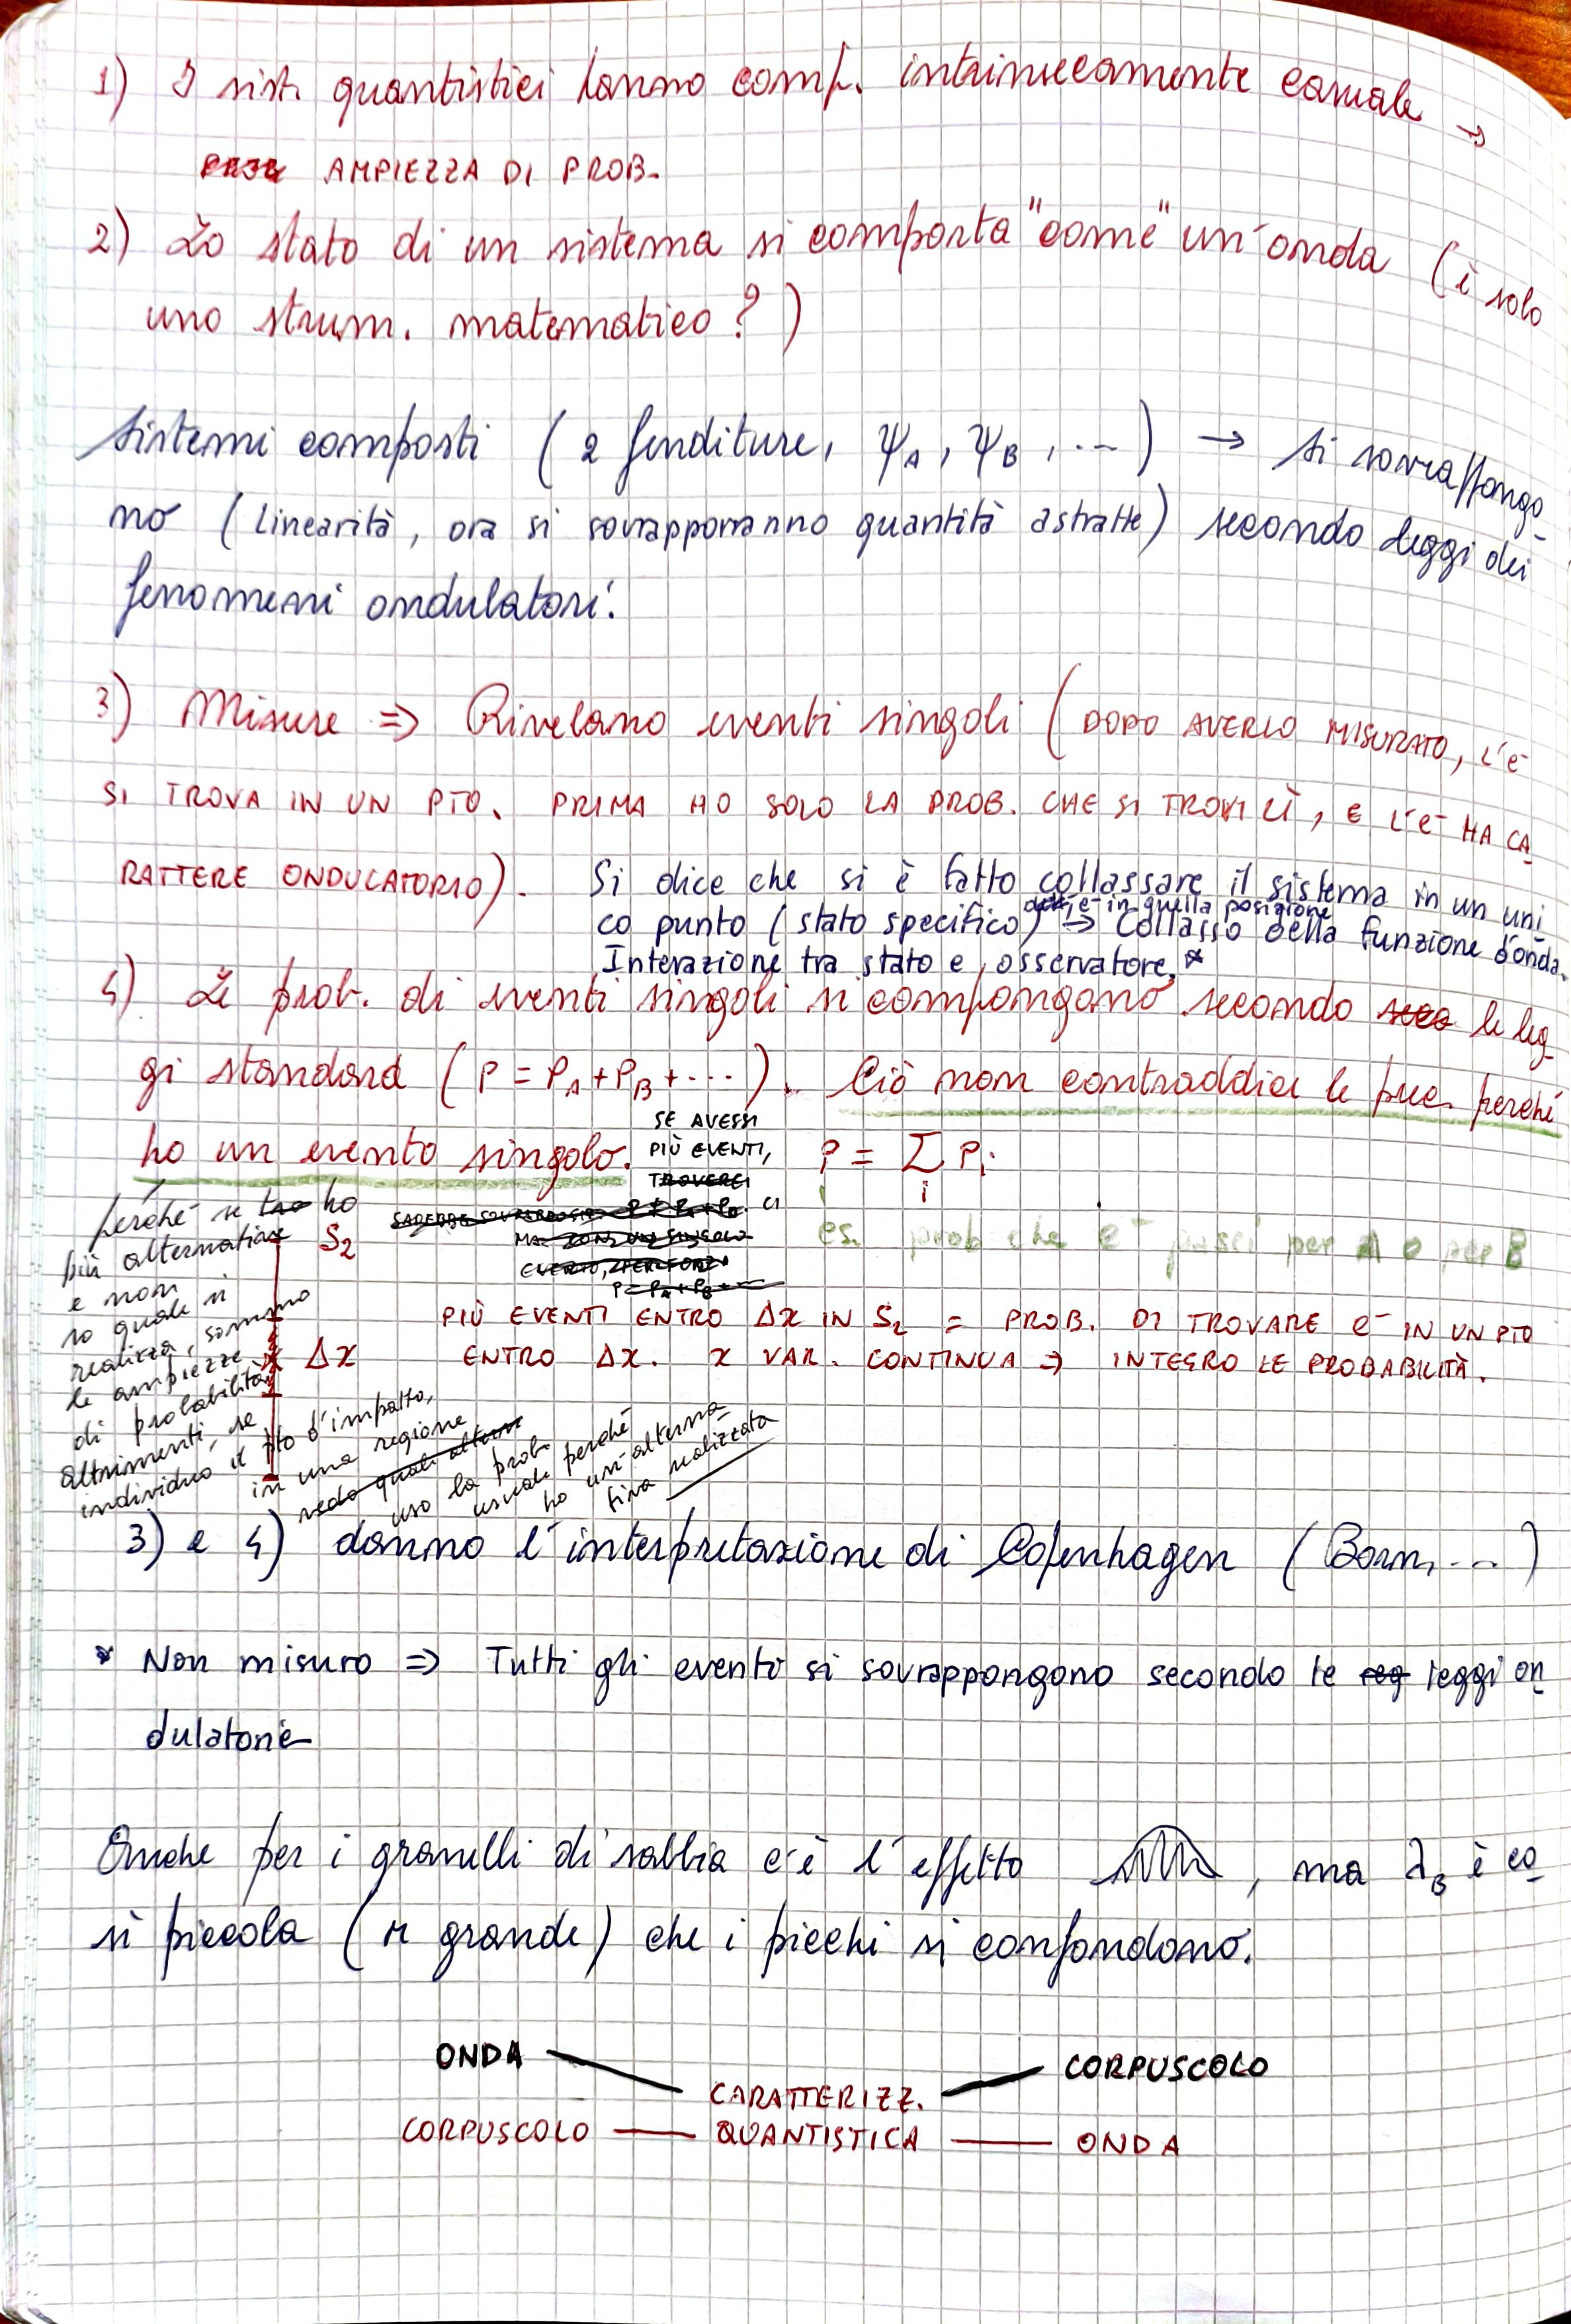 1) I sist. quantistici hanno comp. intrinsecamente casuale →
AMPIEZZA DI PROB.
2) Lo stato di un sistema si comporta "come" un'onda (è solo
uno strum. matematico?)
Sistemi composti (2 fenditure, ψA, ψB, ...) → si sovrappongo
no (linearità, ora si sovrapporranno quantità astratte) secondo leggi dei
fenomeni ondulatori.
3) Misure ⇒ Rivelano eventi singoli (DOPO AVERLO MISURATO, L'e⁻
SI TROVA IN UN PTO. PRIMA HO SOLO LA PROB. CHE SI TROVI LÌ, E L'e⁻ HA CA
RATTERE ONDULATORIO). Si dice che si è fatto collassare il sistema in un uni
co punto (stato specifico) ⇒ Collasso della funzione d'onda.
e⁻ in quella posizione
Interazione tra stato e osservatore. *
4) Le prob. di eventi singoli si compongono secondo le leg
gi standard (P = PA + PB + ...). Ciò non contraddice le prec. perché
ho un evento singolo.
SE AVESSI
PIÙ EVENTI,
TROVEREI
P = Σi Pi
es. prob che e⁻ passi per A o per B
perché se ho
più alternative
e non
so quale si
realizza, sommo
le ampiezze
di probabilità
altrimenti, se
individuo il pto d'impatto,
in una regione
uso la prob.
usuale perché
ho un'alterna
tiva realizzata
S2
Δx
PIÙ EVENTI ENTRO Δx IN S2 = PROB. DI TROVARE e⁻ IN UN PTO
ENTRO Δx. x VAR. CONTINUA ⇒ INTEGRO LE PROBABILITÀ.
3) e 4) danno l'interpretazione di Copenhagen (Born, ...)
* Non misuro ⇒ Tutti gli evento si sovrappongono secondo le leggi on
dulatorie
Anche per i granelli di sabbia c'è l'effetto , ma λB è co
sì piccola (m grande) che i picchi si confondono.
ONDA CORPUSCOLO
CARATTERIZZ.
CORPUSCOLO — QUANTISTICA — ONDA